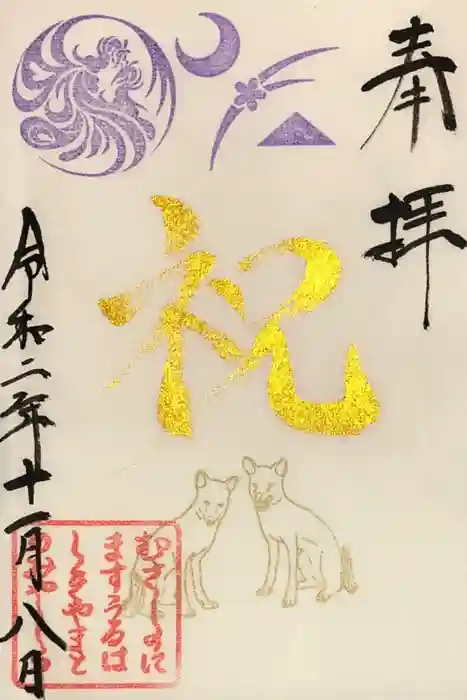 奉拝
祝
むさしのに
ますうるは
しきやまと
令和二年十一月八日